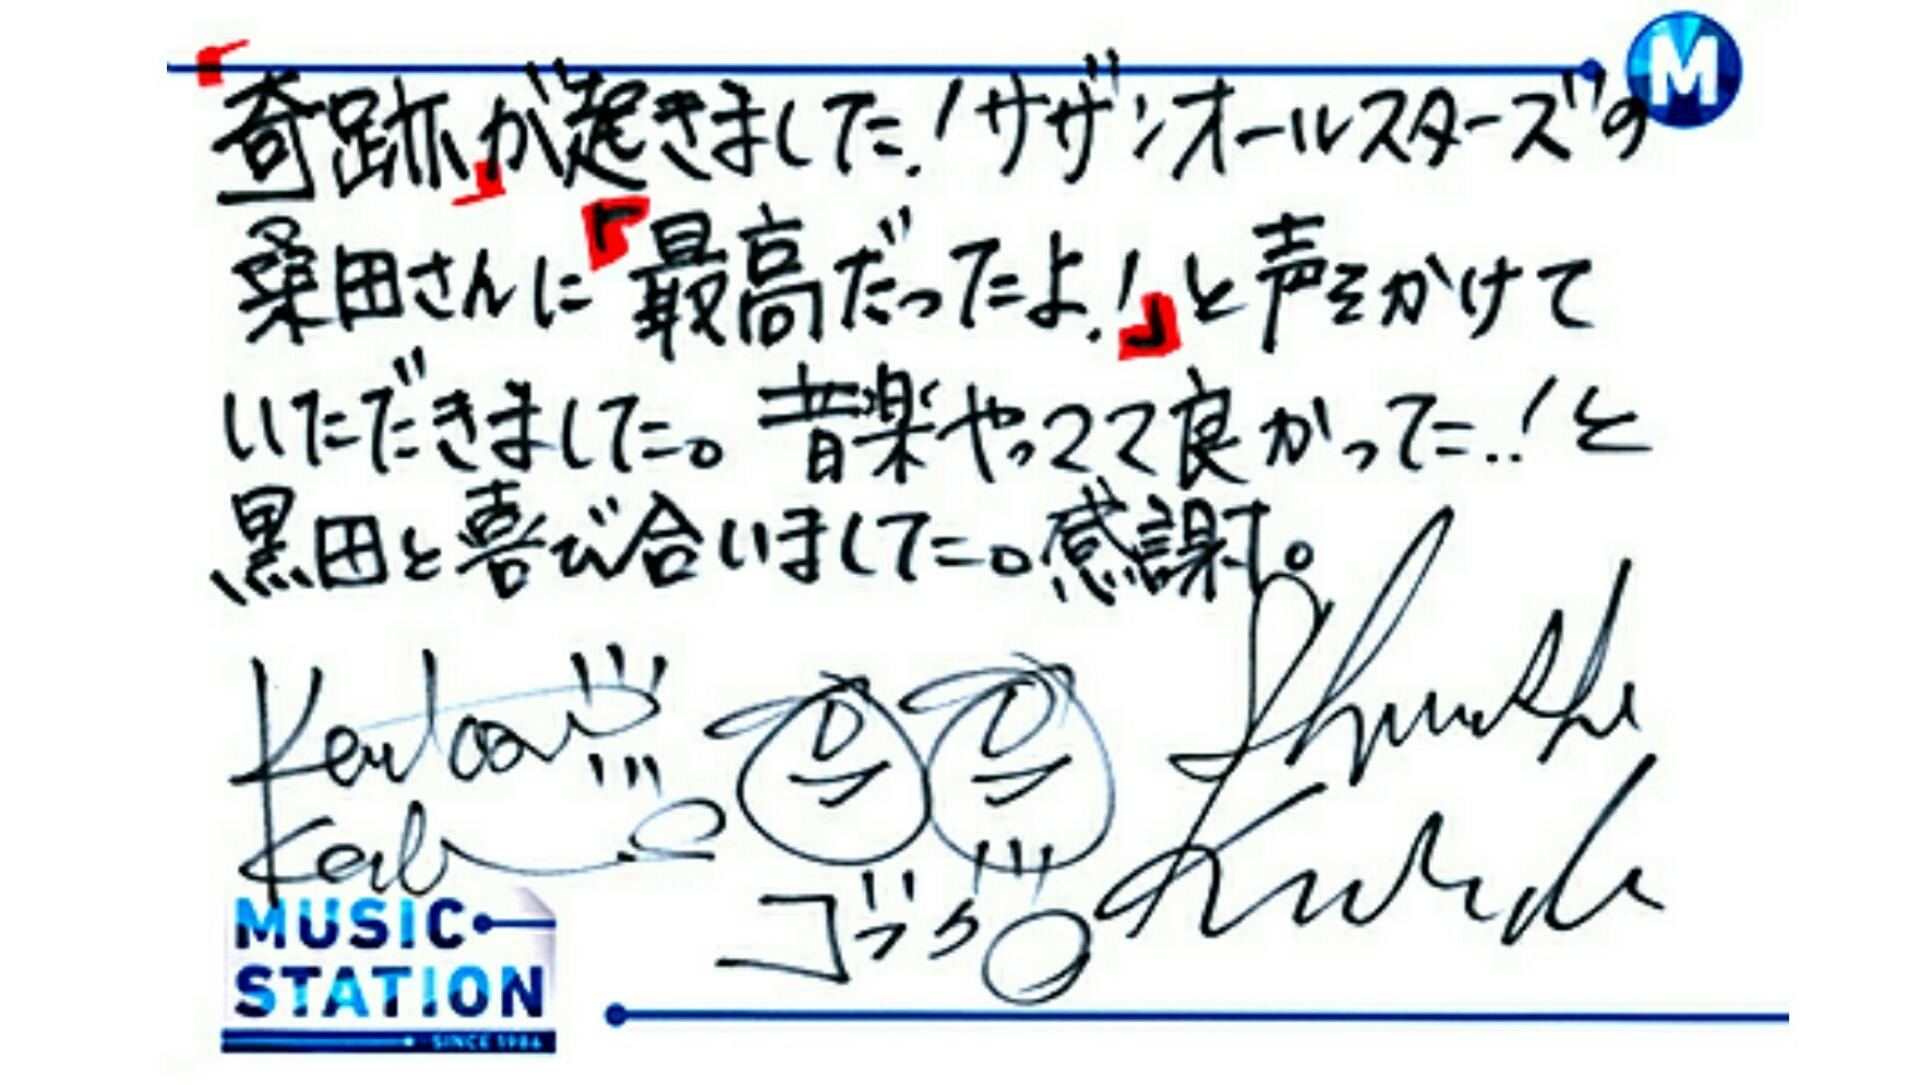 M
「奇跡」が起きました!サザンオールスターズの
桑田さんに「最高だったよ!」と声をかけて
いただきました。音楽やってて良かった..!と
黒田と喜び合いました。感謝。
MUSIC
STATION
SINCE 1986